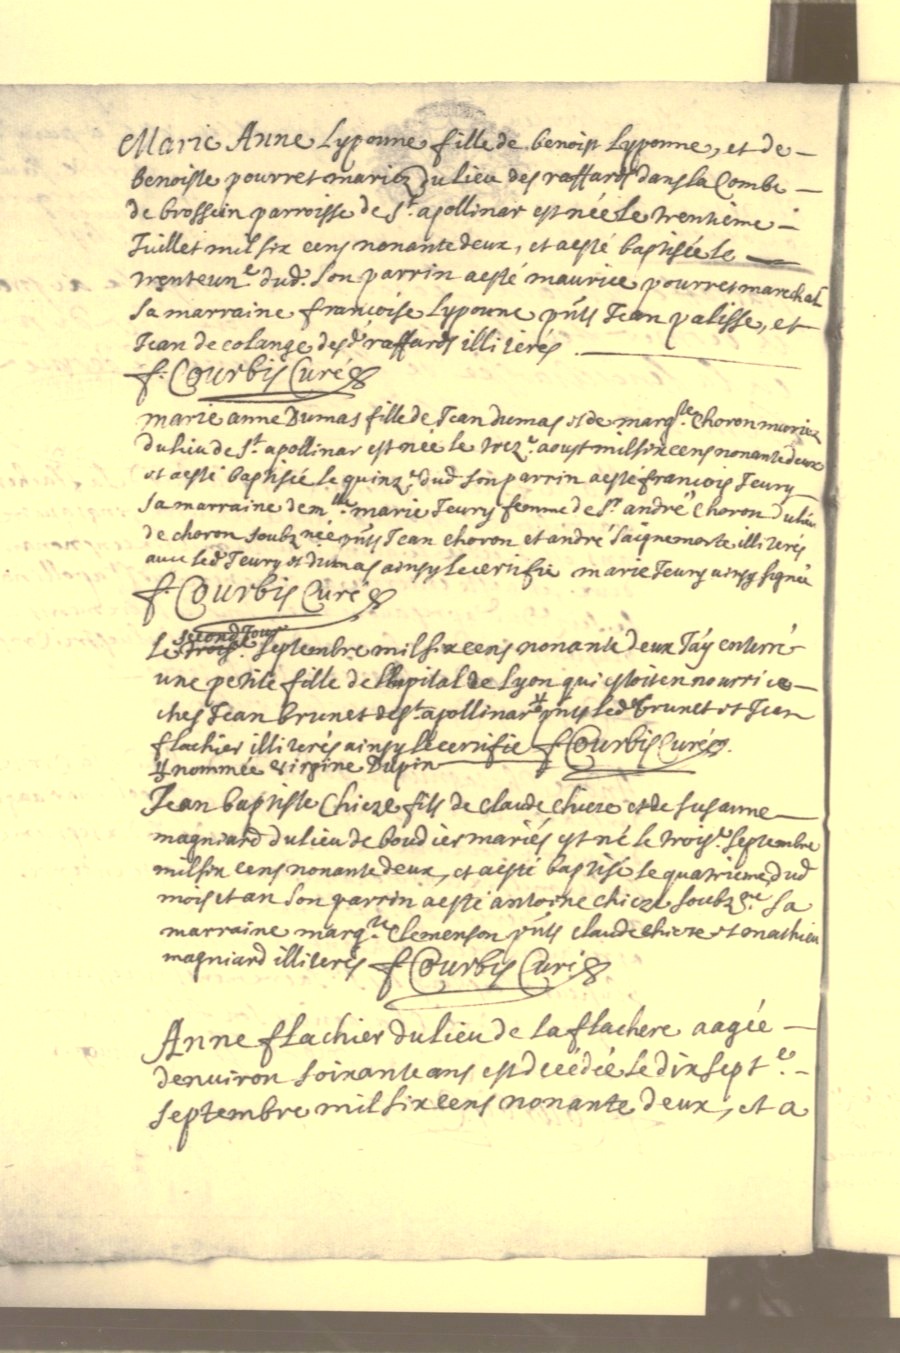 Marie Anne Lyponne fille de benoist Lyponne, et de
benoiste pourret mariez du lieu des raffards dans la Combe
de brossein parroisse de St. apollinar est née Le trentième
Juillet mil six cens nonante deux, et a esté baptisée le
trenteune. dud. son parrin a esté maurice pourret marechal
sa marraine francoise Lyponne pnts Jean palisse, et
Jean de colange desd. raffards illiterés
f. Courbis Curé
marie anne Dumas fille de Jean dumas et de margte. Choron mariez
du lieu de St. apollinar est née le treze. aoust mil six cens nonante deux
et a esté baptisée le quinze. dud son parrin a esté francois Feury
sa marraine demlle. marie Feury femme de Sr. andré Choron du lieu
de choron soubznée pnts Jean choron et andré Saignemorte illiterés
avec led Feury et dumas ainsy le certifie marie Feury ainsy signée
f. Courbis Curé
second Jour
Le trois. Septembre mil six cens nonante deux J'ay enterré
une petite fille de l'hopital de Lyon qui estoit en nourrice
chez Jean brunet de St. apollinar pnts led. brunet et Jean
flachier illiterés ainsy le certifie f. Courbis Curé.
nommée virgine Dupin
Jean baptiste Chieze fils de claude chieze et de susanne
magniard du lieu de boudier mariés est né le trois. septembre
mil six cens nonante deux, et a esté baptisé le quatrieme dud
mois et an son parrin a esté antoine chieze soubzné. sa
marraine margte. Clemenson pnts claude chieze et mathieu
magniard illiterés f. Courbis Curé
Anne flachier du lieu de la flachere aagée
denviron soixante ans est decédée le dix sept e.
septembre mil six cens nonante deux, et a